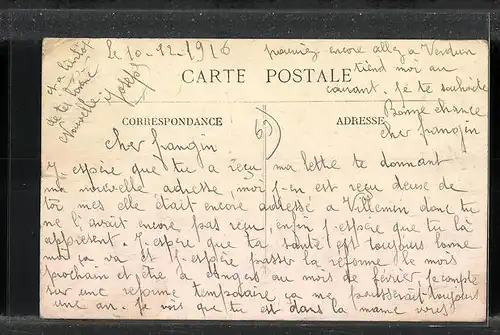 Le 10-12-1916
pourriez encore allez a Verdun
tiend moi au
courant. je te souhaite
Bonne chance
cher frangin
et a bientôt
de tes bonne
Nouvelle
Joseph
CARTE POSTALE
CORRESPONDANCE
ADRESSE
69
cher frangin
J espère que tu a reçu ma lettre te donnant
ma nouvelle adresse, moi j-en est reçu deuse de
toi mes elle était encore adressé a Villemin donc tu
ne l'avait encore pas reçu, enfin j-espère que tu la
appresent. J-espère que ta santé est toujours bonne
moi ça va et j-espère passer la réforme le mois
prochain et être a au mois de février, je compte
sur une reforme temporaire ça me pousserait toujours
une an. Je vois que tu est dans la mame